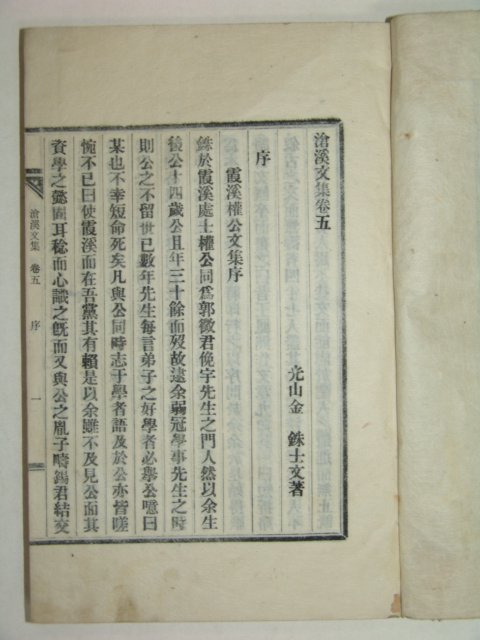 滄溪文集卷五
光山金 銖士文著
序
霞溪權公文集序
銖於霞溪處士權公同爲郭徵君俛宇先生之門人然以余生
後公十四歲公且年三十餘而歿故逮余弱冠學事先生之時
則公之不留世已數年先生每言弟子之好學者必擧公噫曰
某也不幸短命死矣凡與公同時志于學者語及於公亦皆嗟
惋不已曰使霞溪而在吾黨其有賴是以余雖不及見公而其
資學之懿固耳稔而心識之旣而又與公之胤子疇錫君結交
滄溪文集 卷五 序 一